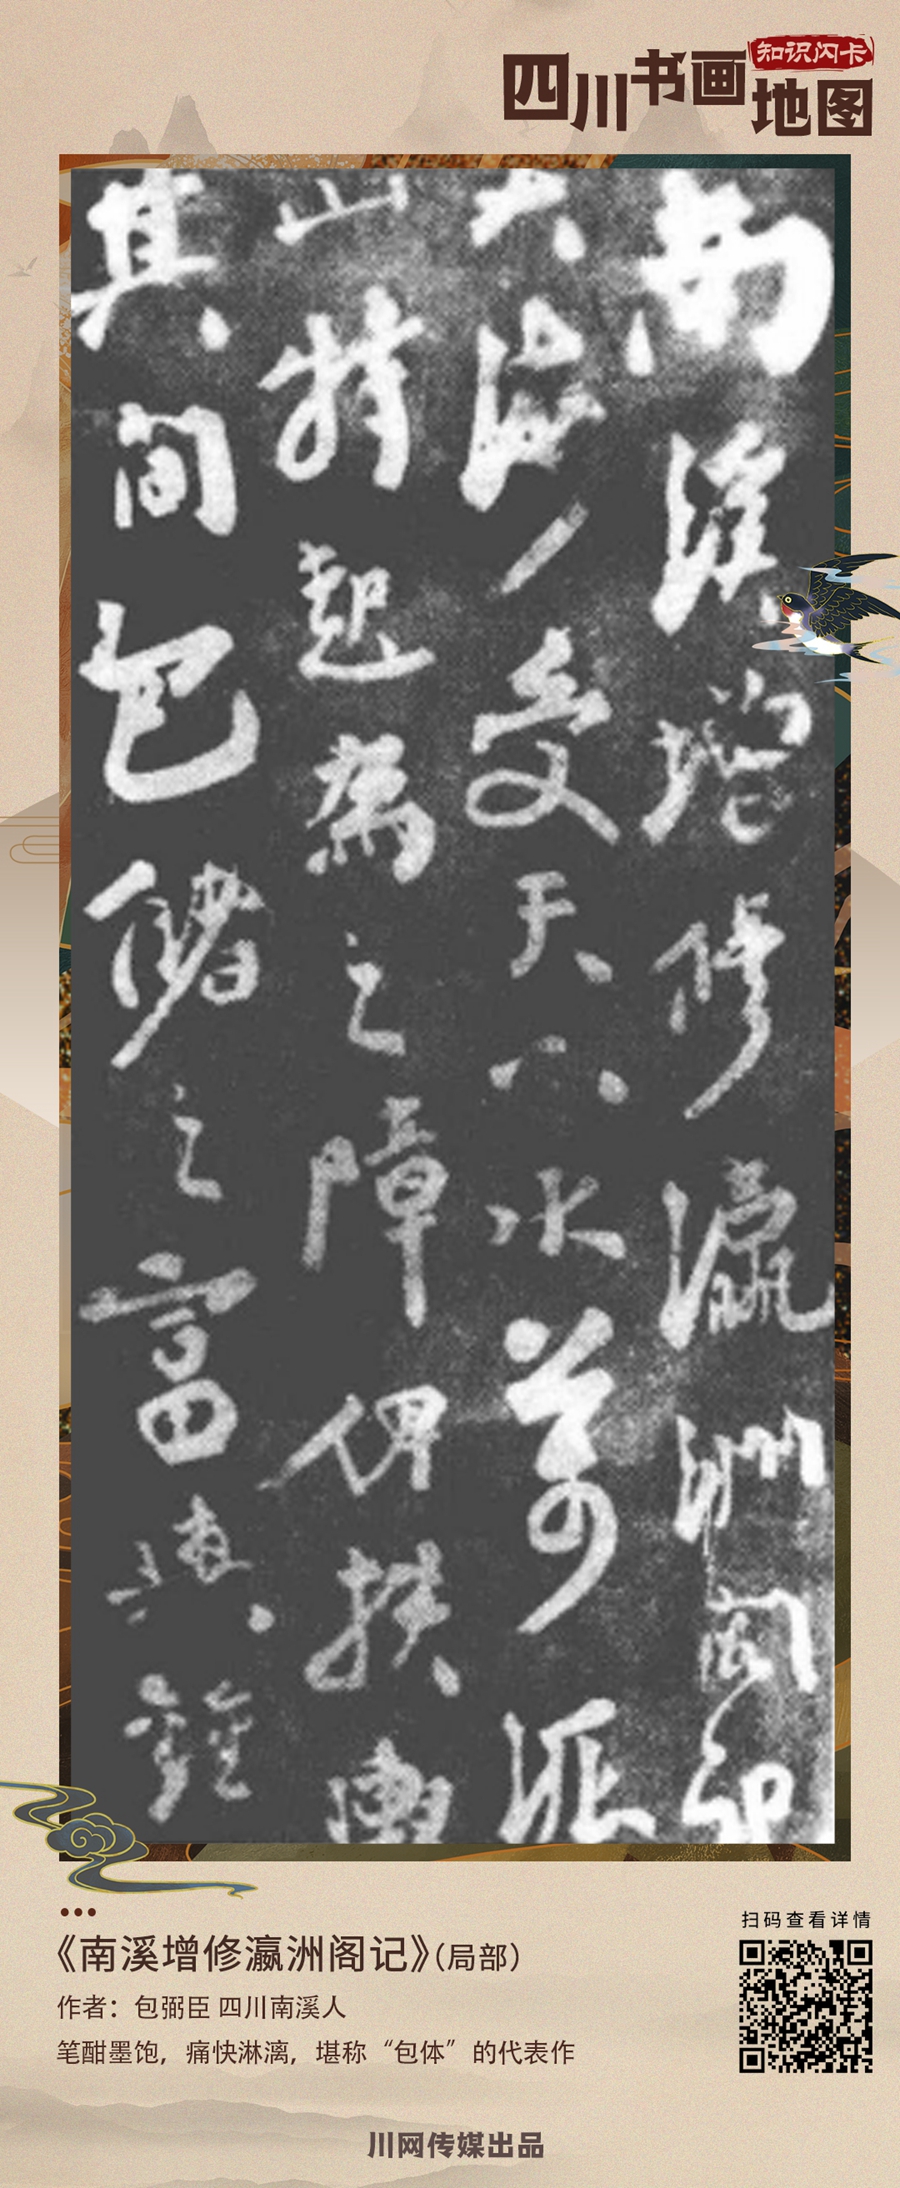 四川书画地图
知识闪卡
南溪增修瀛洲閣記
大海受天下水萬派
山特起為之障伊扶輿
其間包儲之富
《南溪增修瀛洲阁记》（局部）
作者：包弼臣 四川南溪人
笔酣墨饱，痛快淋漓，堪称“包体”的代表作
扫码查看详情
川网传媒出品